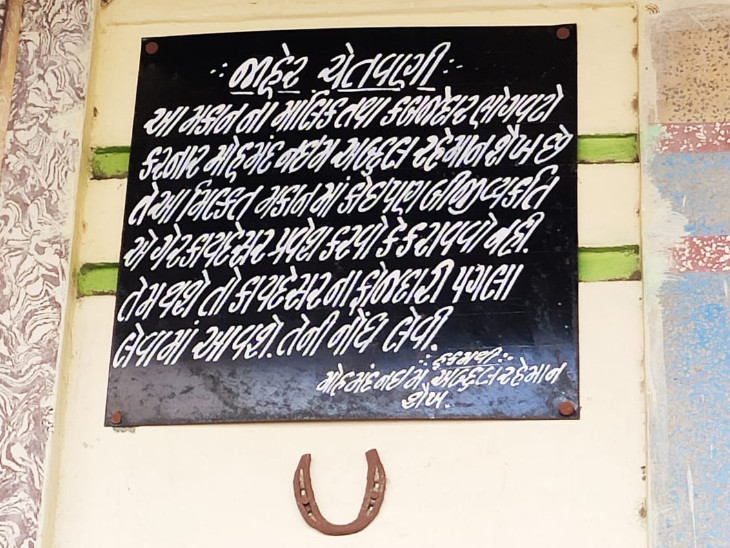 :: જાહેર ચેતવણી ::
આ મકાન ના માલિક તથા કબજેદાર ભોગવટો
કરનાર મોહમંદ નઇમ અબ્દુલ રહેમાન શેખ છે
તે આ મિલ્કત મકાન માં કોઇપણ બીજી વ્યકતિ
એ ગેરકાયદેસર પ્રવેશ કરવો કે કરાવવો નહી.
તેમ થશે તો કાયદેસરના ફોજદારી પગલા
લેવામાં આવશે. તેની નોંધ લેવી.
:: હુકમથી ::
મોહમંદ નઇમ અબ્દુલ રહેમાન
શેખ.